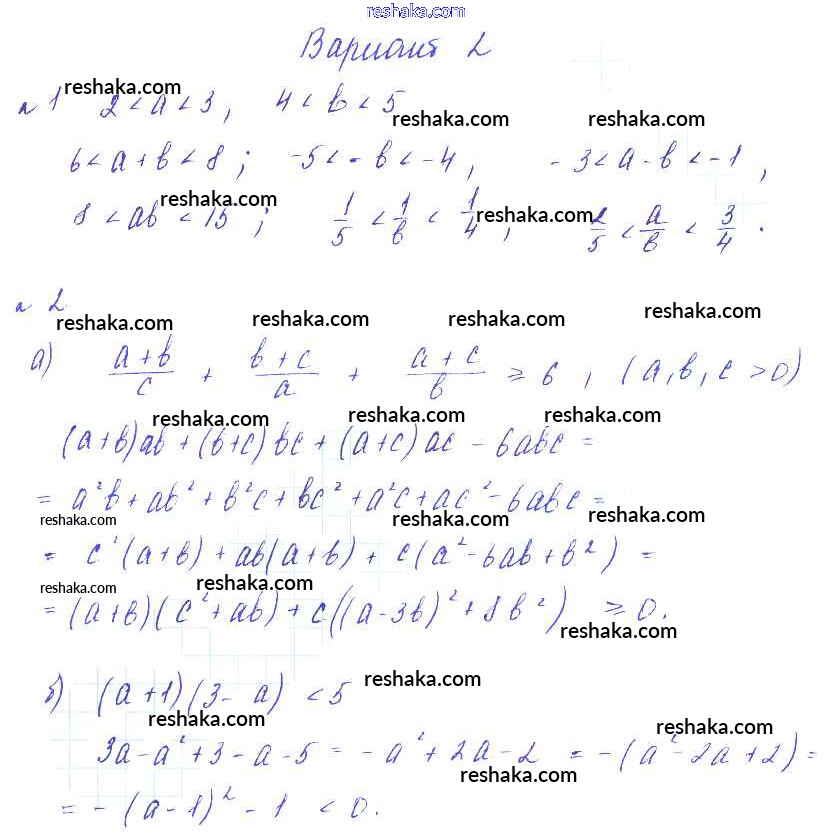 reshaka.com
Вариант 2
reshaka.com
№ 1 2 < a < 3, 4 < b < 5
reshaka.com reshaka.com
6 < a + b < 8; -5 < -b < -4, -3 < a - b < -1,
reshaka.com
8 < ab < 15; 1/5 < 1/b < 1/4, 2/5 < a/b < 3/4.
reshaka.com
№ 2
reshaka.com reshaka.com reshaka.com reshaka.com
а) (a + b)/c + (b + c)/a + (a + c)/b ≥ 6, (a, b, c > 0)
reshaka.com reshaka.com reshaka.com
(a+b)ab + (b+c)bc + (a+c)ac - 6abc =
= a²b + ab² + b²c + bc² + a²c + ac² - 6abc =
reshaka.com reshaka.com reshaka.com
= c²(a+b) + ab(a+b) + c(a² - 6ab + b²) =
reshaka.com reshaka.com
= (a+b)(c² + ab) + c((a-3b)² + 8b²) ≥ 0.
reshaka.com
б) (a+1)(3-a) < 5
reshaka.com
reshaka.com reshaka.com
3a - a² + 3 - a - 5 = -a² + 2a - 2 = -(a² - 2a + 2) =
reshaka.com
= -(a-1)² - 1 < 0.